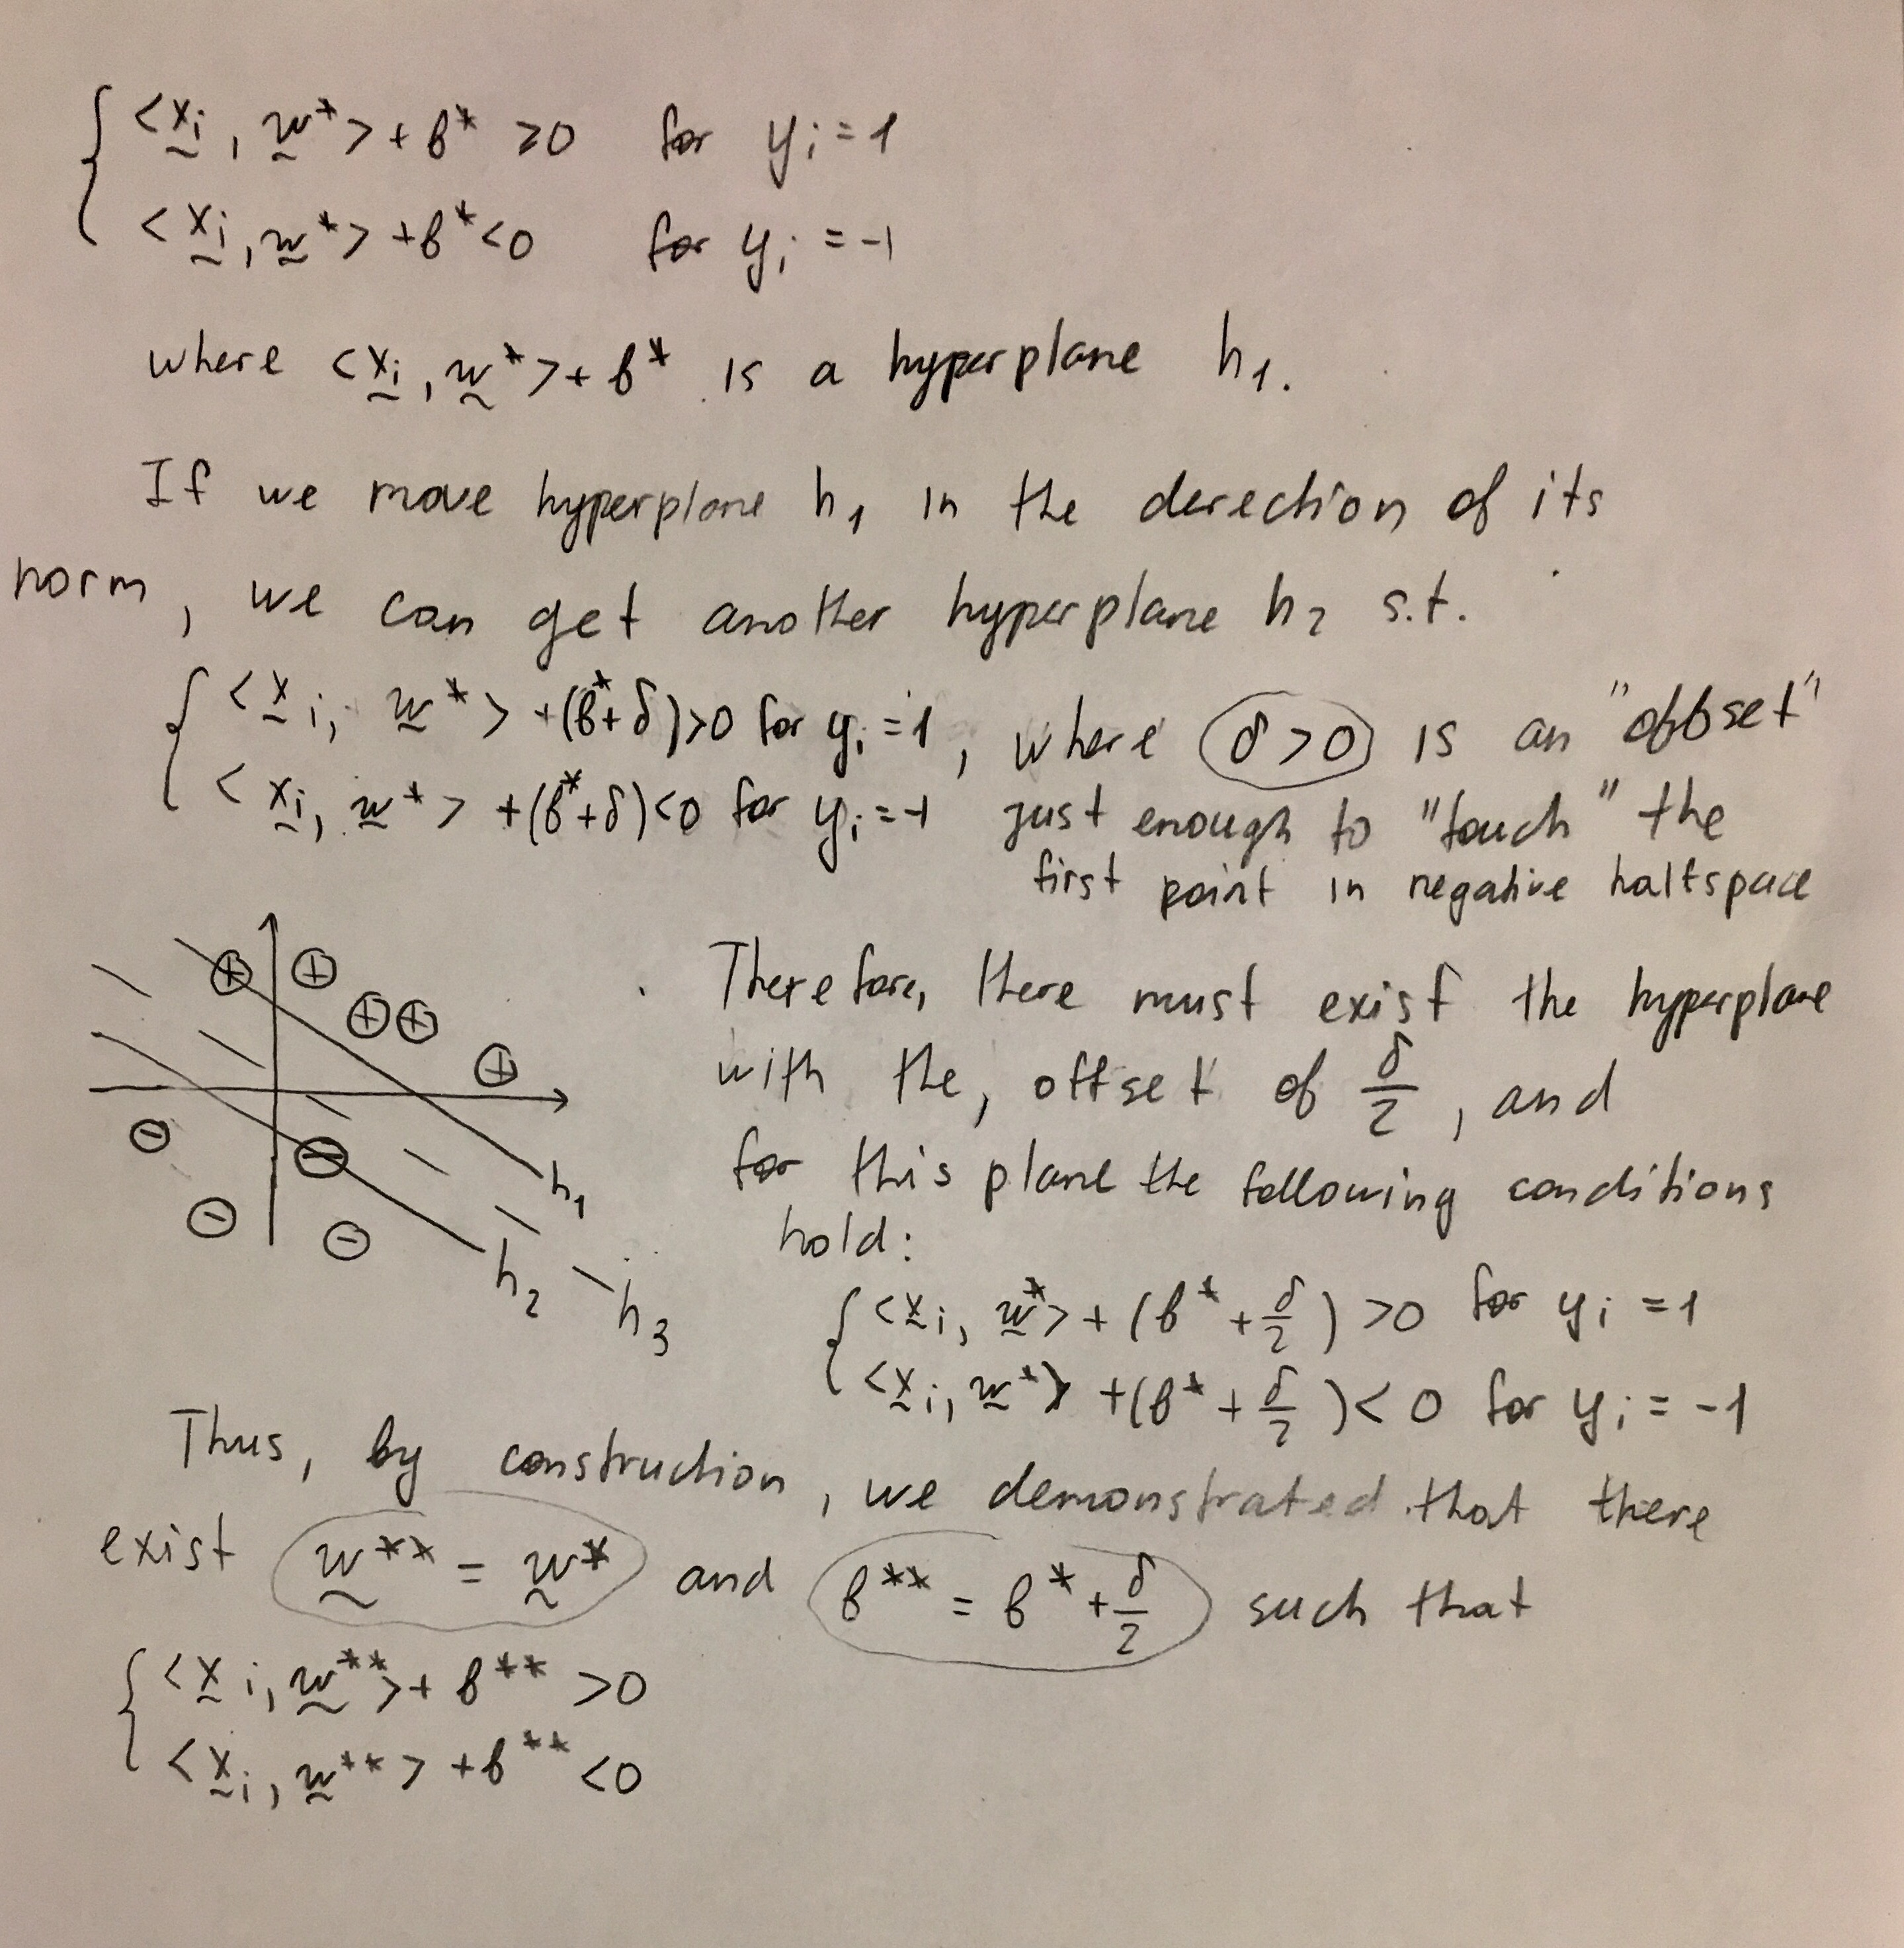 { <x̰ᵢ, w̰*> + b* ≥0 for yᵢ = 1
<x̰ᵢ, w̰*> + b* <0 for yᵢ = -1
where <x̰ᵢ, w̰*> + b* is a hyperplane h₁.
If we move hyperplane h₁ in the derection of its
norm, we can get another hyperplane h₂ s.t.
{ <x̰ᵢ, w̰*> + (b*+δ) >0 for yᵢ = 1, where δ>0 is an "offset"
<x̰ᵢ, w̰*> + (b*+δ) <0 for yᵢ = -1 just enough to "touch" the
first point in negative halfspace
Therefore, there must exist the hyperplane
with the, offset of δ/2, and
for this plane the following conditions
hold:
{ <x̰ᵢ, w̰*> + (b* + δ/2) >0 for yᵢ = 1
<x̰ᵢ, w̰*> + (b* + δ/2) < 0 for yᵢ = -1
h₁
h₂
h₃
Thus, by construction, we demonstrated that there
exist w̰** = w̰* and b** = b* + δ/2 such that
{ <x̰ᵢ, w̰**> + b** >0
<x̰ᵢ, w̰**> + b** <0